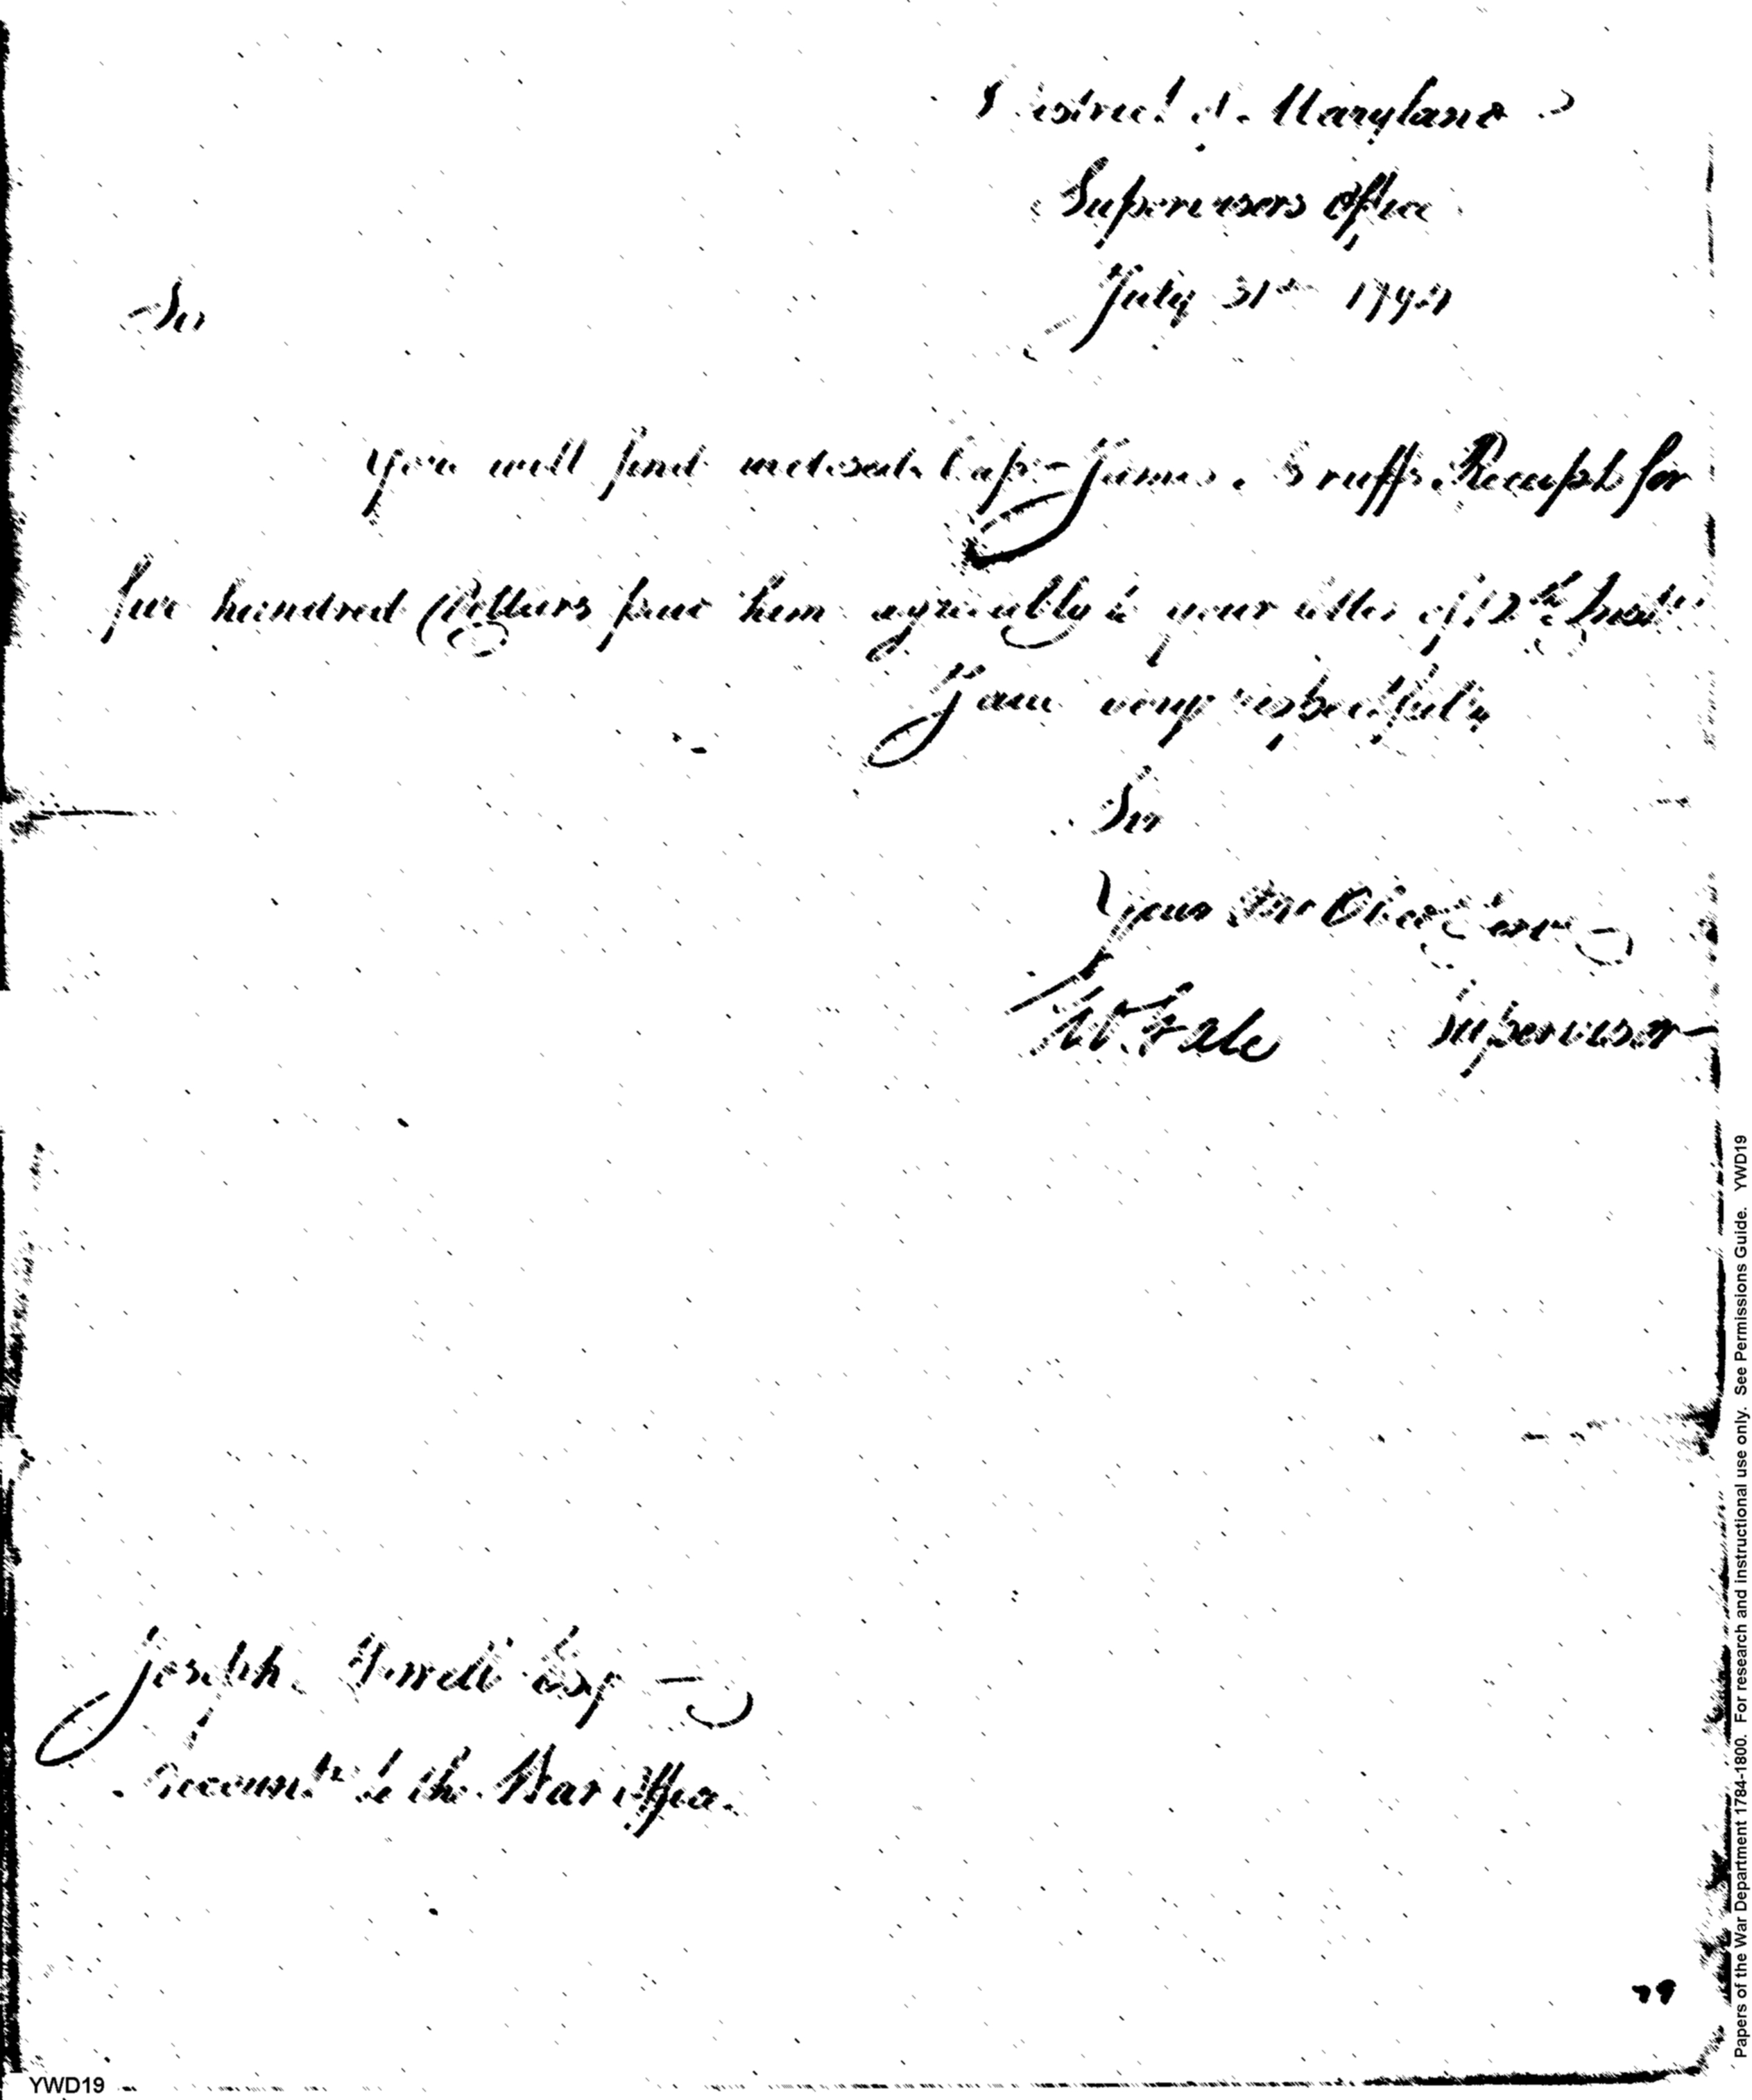 District of Maryland
Supervisors Office
July 31st 1792
Sir
You will find inclosed Capt James Bruffs Receipt for
five hundred Dollars paid him agreeably to your letter of 12th Inst
I am very respectfully
Sir
Your Obed Serv
Gale Supervisor
Joseph Howell Esq
Accountt to the War Office
79
YWD19
Papers of the War Department 1784-1800. For research and instructional use only. See Permissions Guide. YWD19